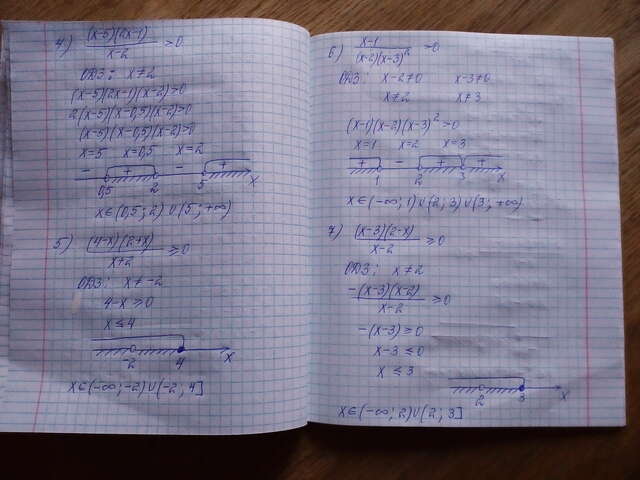 4) (x-5)(2x-1)
x-2
>0
ОДЗ: x≠2
(x-5)(2x-1)(x-2)>0
2(x-5)(x-0,5)(x-2)>0
(x-5)(x-0,5)(x-2)>0
x=5 x=0,5 x=2
- + - +
0,5 2 5 x
x∈(0,5; 2)∪(5; +∞)
5) (4-x)(2+x)
x+2
≥0
ОДЗ: x≠-2
4-x≥0
x≤4
-2 4 x
x∈(-∞; -2)∪(-2; 4]
6) x-1
(x-2)(x-3)²
>0
ОДЗ: x-2≠0 x-3≠0
x≠2 x≠3
(x-1)(x-2)(x-3)²>0
x=1 x=2 x=3
+ - + +
1 2 3 x
x∈(-∞; 1)∪(2; 3)∪(3; +∞)
7) (x-3)(2-x)
x-2
≥0
ОДЗ: x≠2
-(x-3)(x-2)
x-2
≥0
-(x-3)≥0
x-3≤0
x≤3
2 3 x
x∈(-∞; 2)∪(2; 3]